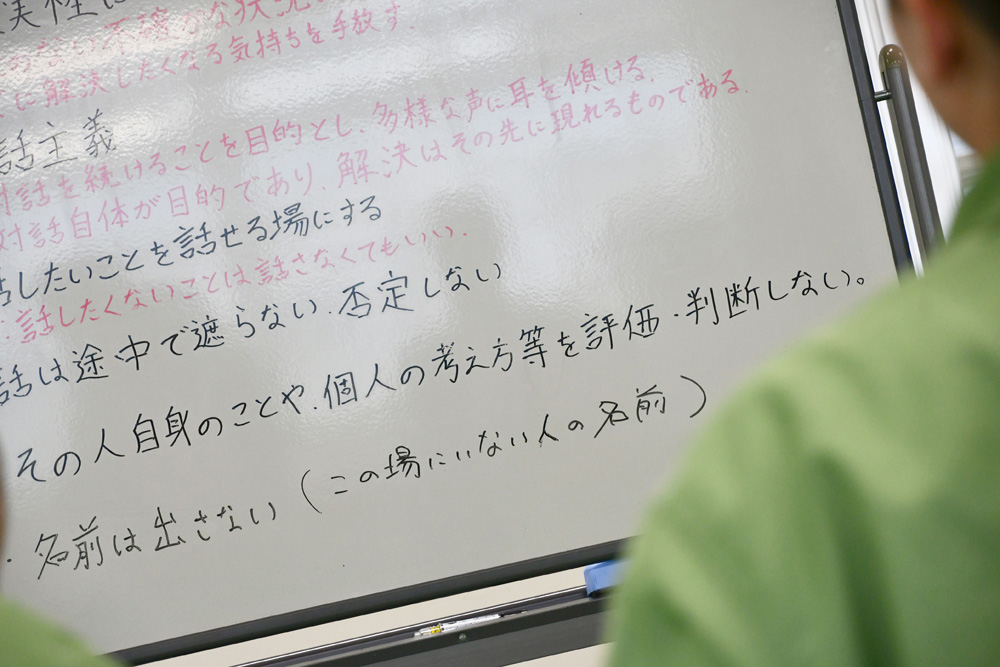 ない不確かな状況
に解決したくなる気持ちを手放す.
話主義
対話を続けることを目的とし、多様な声に耳を傾ける.
対話自体が目的であり、解決はその先に現れるものである.
話したいことを話せる場にする
話したくないことは話さなくてもいい.
話は途中で遮らない、否定しない
その人自身のことや、個人の考え方等を評価・判断しない。
・名前は出さない(この場にいない人の名前)